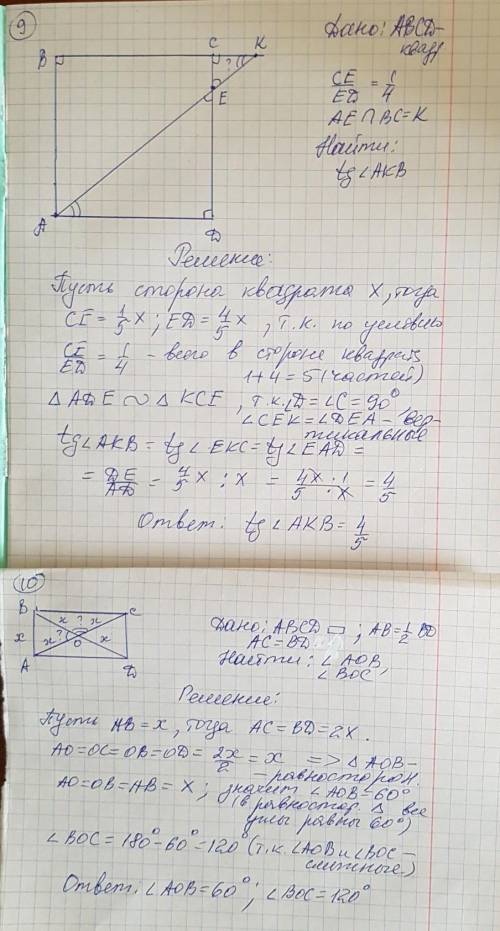 9
Дано: ABCD-
квадр
B C K
?
E
A D
CE/ED = 1/4
AE ∩ BC = K
Найти:
tg∠AKB
Решение:
Пусть сторона квадрата x, тогда
CE = 1/5 x ; ED = 4/5 x , т.к. по условию
CE/ED = 1/4 - всего в стороне квадрата
1+4=5 (частей)
△ADE ∼ △KCE , т.к. ∠D = ∠C = 90°,
∠CEK = ∠DEA - вер-
тикальные
tg∠AKB = tg∠EKC = tg∠EAD =
= DE/AD = 4/5 x : x = 4x · 1 / 5 · x = 4/5
Ответ: tg∠AKB = 4/5
10
B C
x ? x
x x ? x
O
A D
Дано: ABCD ▭ ; AB = 1/2 BD
AC = BD
Найти: ∠AOB,
∠BOC
Решение:
Пусть AB = x, тогда AC = BD = 2x.
AO = OC = OB = OD = 2x/2 = x => △AOB-
- равносторон.
AO = OB = AB = x ; значит ∠AOB = 60°
(в равностор. △ все
углы равны 60°)
∠BOC = 180° - 60° = 120 (т.к. ∠AOB и ∠BOC -
смежные.)
Ответ: ∠AOB = 60° ; ∠BOC = 120°